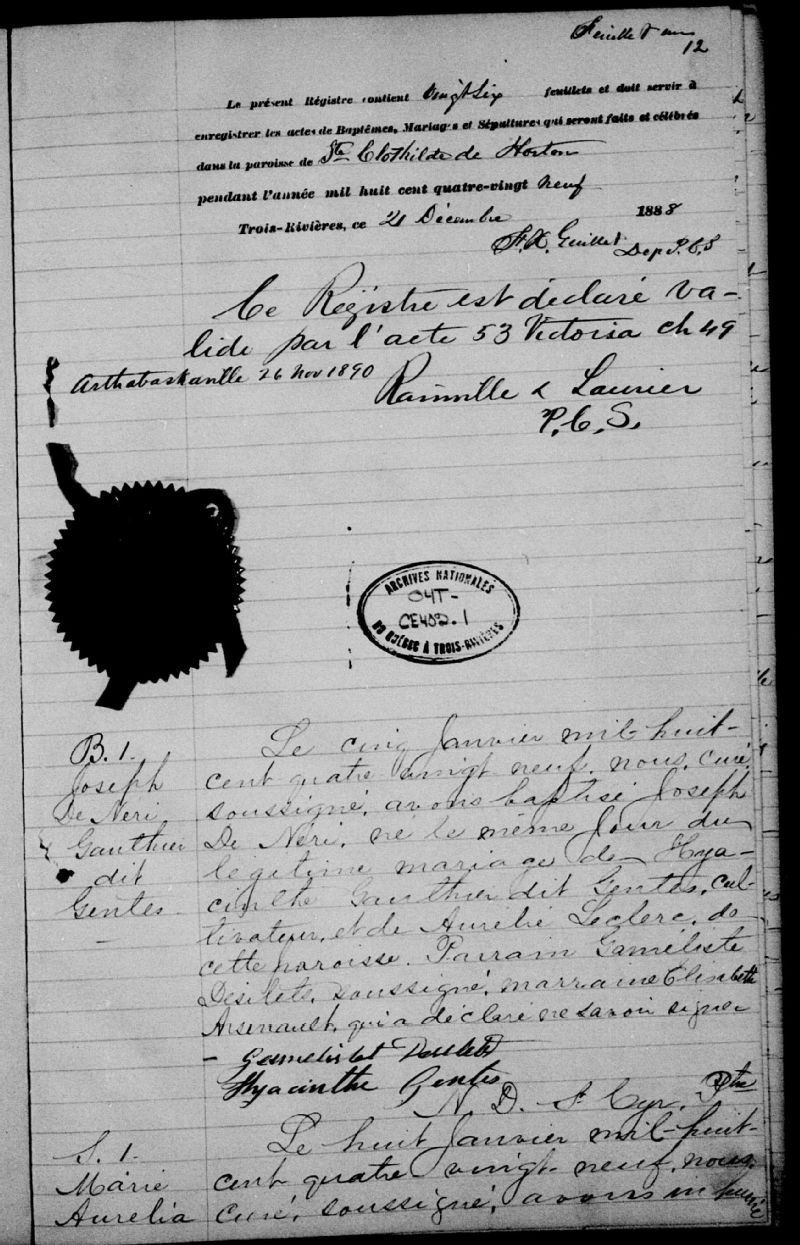 Feuillet un
12
Le présent Régistre contient Vingt Six feuillets et doit servir à
enregistrer les actes de Baptêmes, Mariages et Sépultures qui seront faits et célébrés
dans la paroisse de Ste Clothilde de Horton
pendant l'année mil huit cent quatre-vingt neuf
Trois-Rivières, ce 21 Décembre 1888
F.X. Guillet Dep P.C.S
Ce Régistre est déclaré va-
lide par l'acte 53 Victoria ch 49
Arthabaskaville 26 Nov 1890
Rainville & Laurier
P.C.S.
ARCHIVES NATIONALES
04T-
CE402.1
DU QUÉBEC À TROIS-RIVIÈRES
B. 1.
Joseph
De Neri
Gauthier
dit
Gentes
Le cinq Janvier mil-huit-
cent quatre vingt neuf, nous, curé
soussigné, avons baptisé Joseph
De Neri, né le même jour du
légitime mariage de Hya-
cinthe Gauthier dit Gentes, cul-
tivateur, et de Aurélie Leclerc, de
cette paroisse. Parrain Gaméliste
Désilets, soussigné, marraine Elisabeth
Arsenault, qui a déclaré ne savoir signer
Hyacinthe Gentes
N. D. St Cyr, Ptre
S. 1.
Marie
Aurelia
Le huit Janvier mil-huit-
cent quatre vingt neuf, nous,
curé, soussigné, avons inhumé